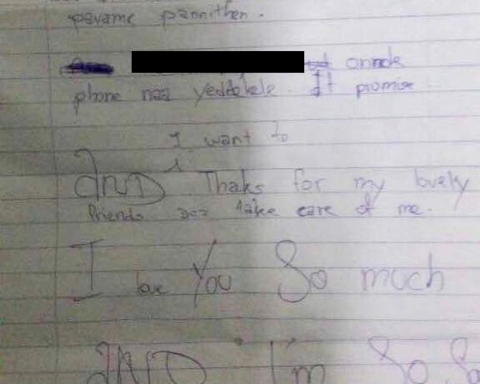 pavame pannithen.
annak
phone naa yeddakele. It promise
I want to
AND Thaks for my lovely
friends take care of me.
I love You So much
AND I'm So